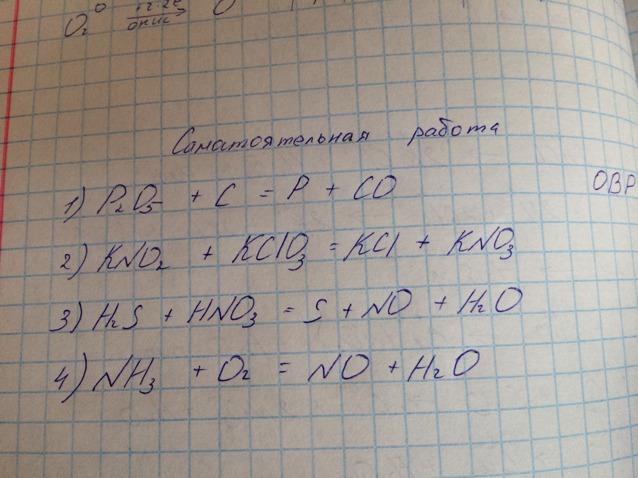 O₂⁰ окис
Саматоятельная работа
1) P₂O₅ + C = P + CO ОВР
2) KNO₂ + KClO₃ = KCl + KNO₃
3) H₂S + HNO₃ = S + NO + H₂O
4) NH₃ + O₂ = NO + H₂O